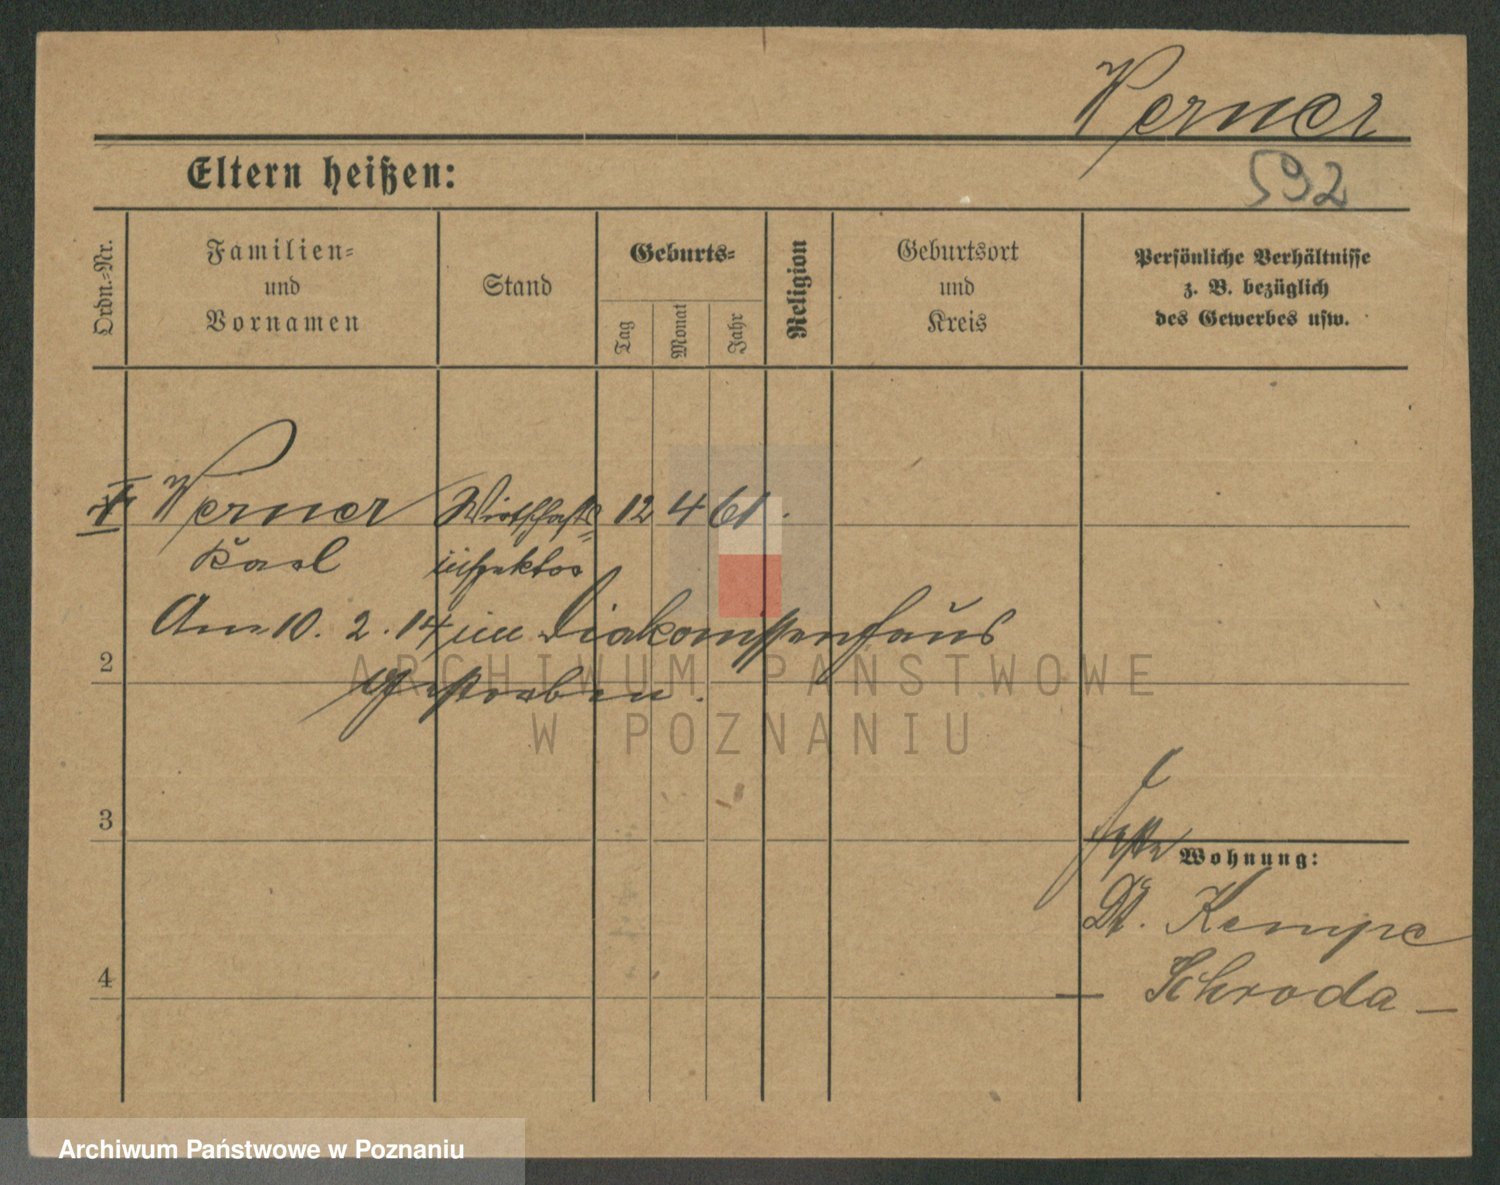 Werner
592
Eltern heißen:
Ordn.-Nr.
Familien-
und
Vornamen
Stand
Geburts-
Tag
Monat
Jahr
Religion
Geburtsort
und
Kreis
Persönliche Verhältnisse
z. B. bezüglich
des Gewerbes usw.
Werner Wirthschafts= 12 4 61.
Karl inspektor
Am 10. 2. 14 im Diakonissenhaus
2
gestorben.
ARCHIWUM PAŃSTWOWE
W POZNANIU
3
Wohnung:
Dt. Kempe
4
Schroda
Archiwum Państwowe w Poznaniu